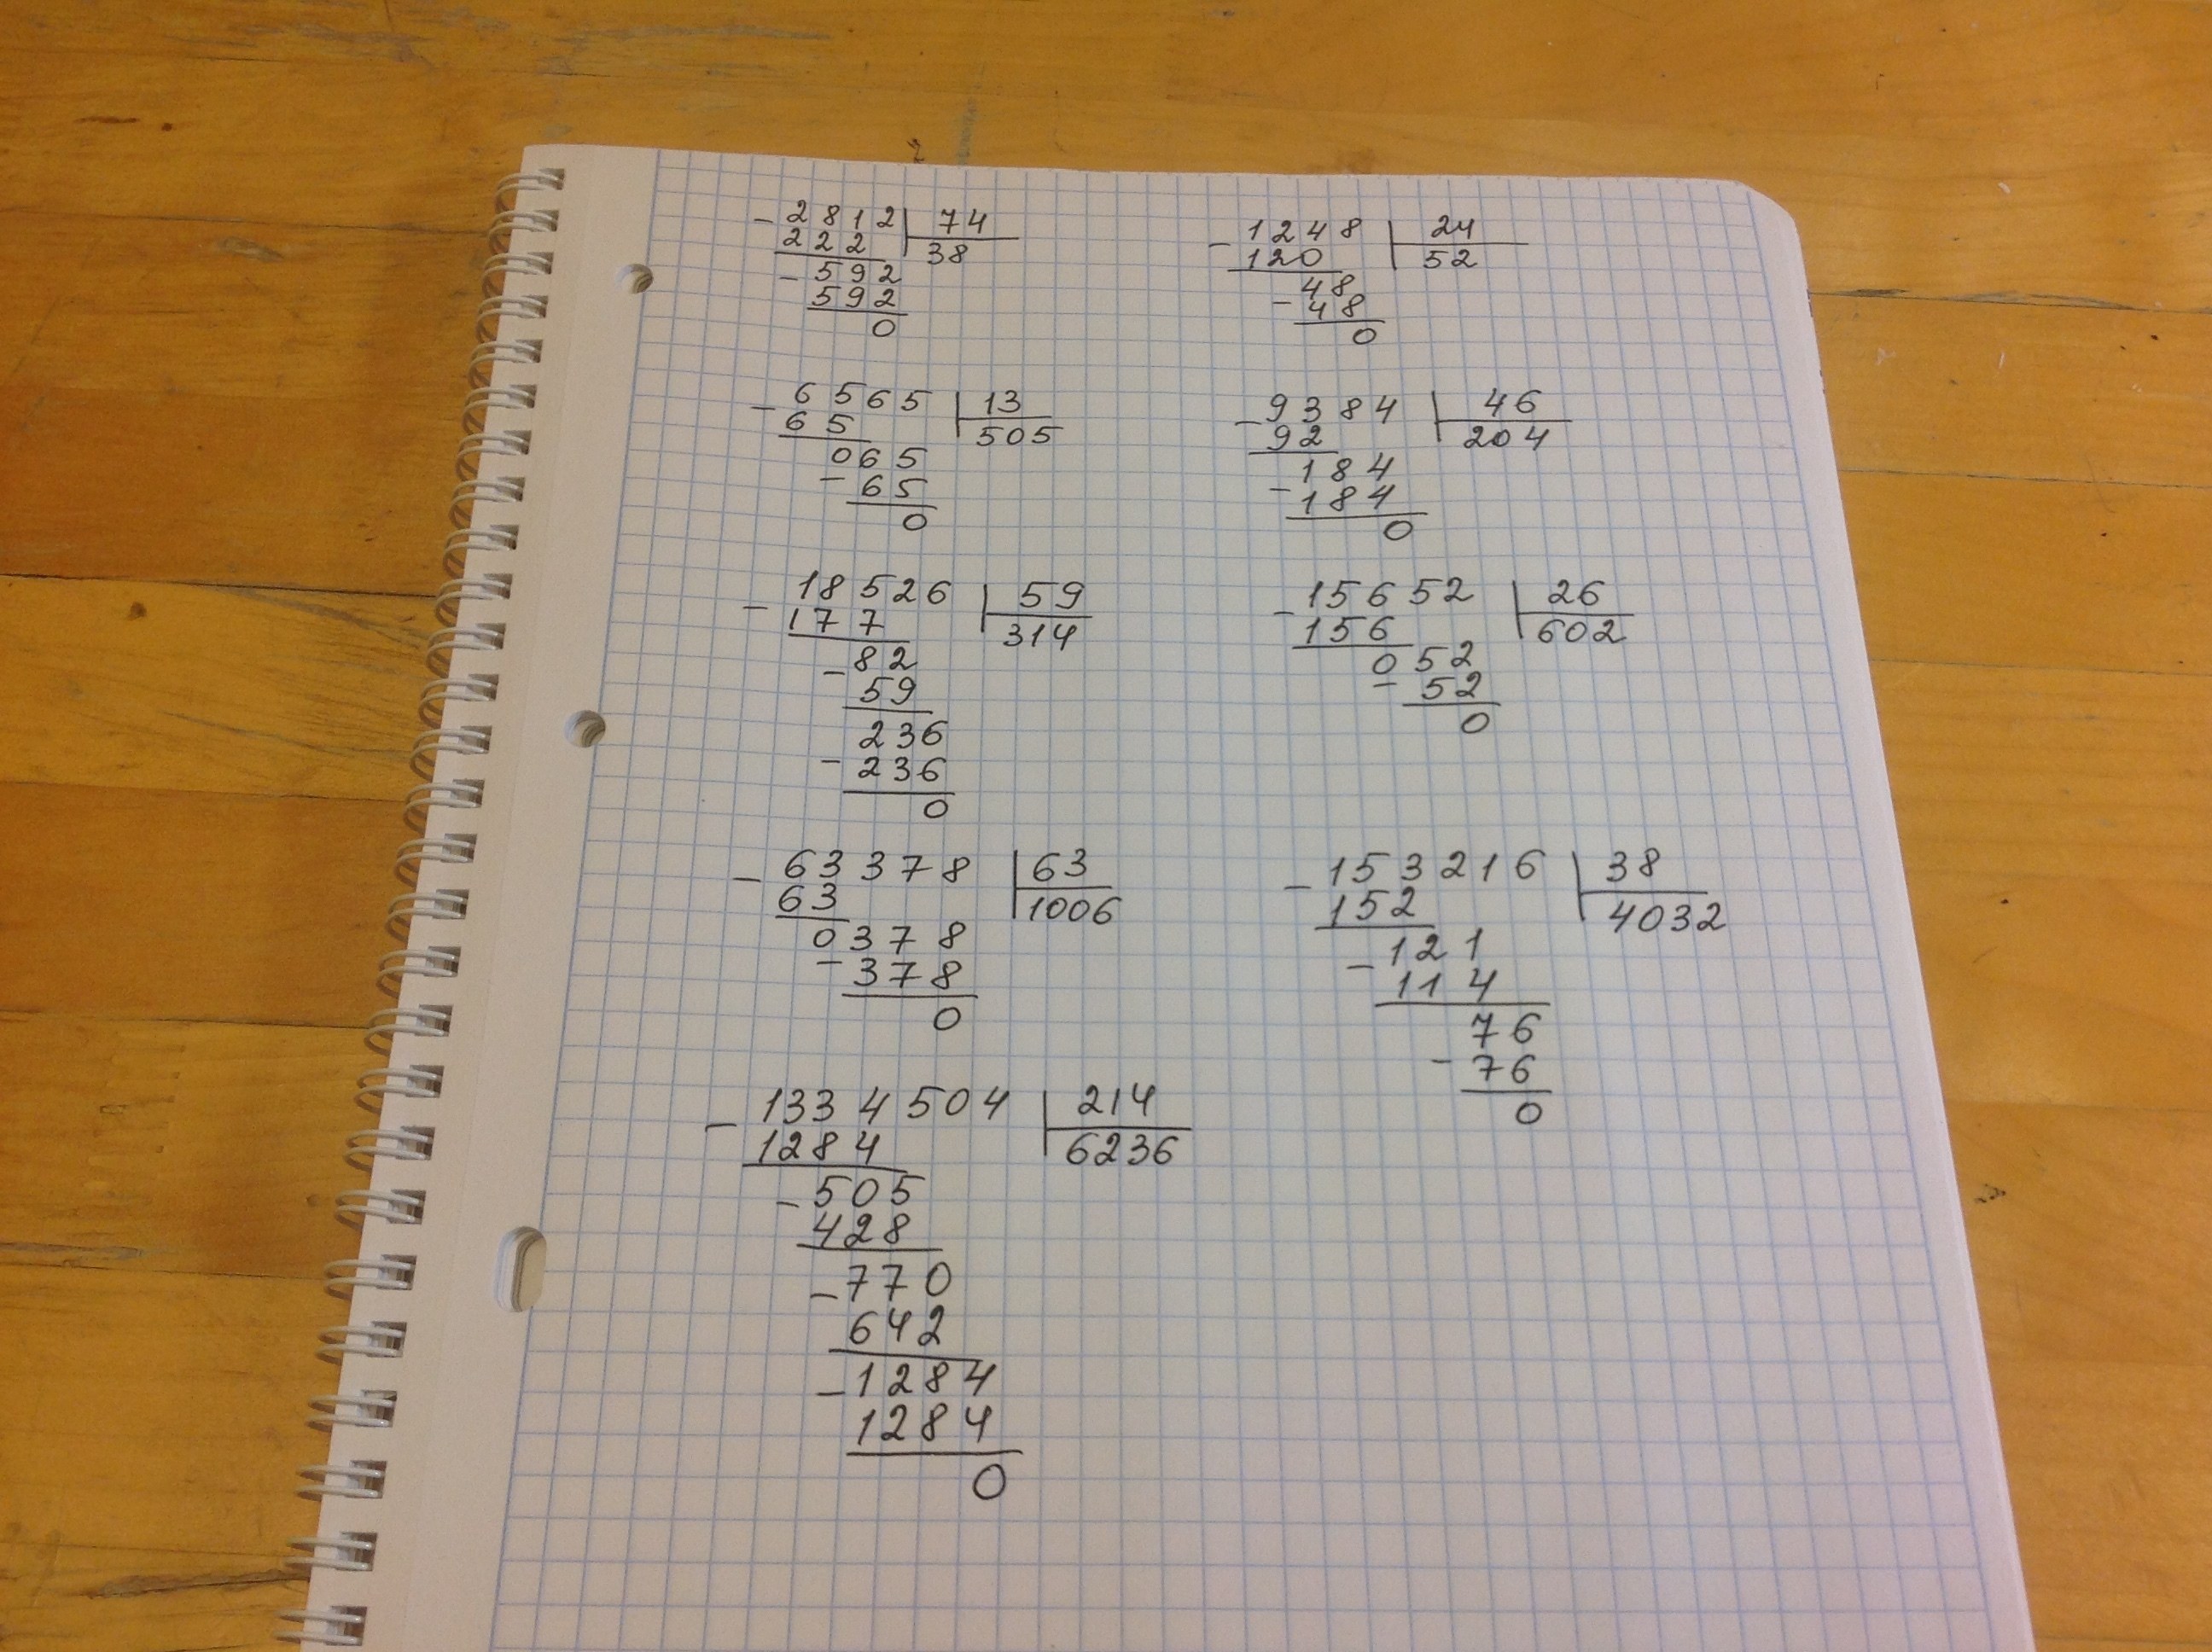 - 2812 | 74
222 | 38
- 592
592
0
- 1248 | 24
120 | 52
- 48
48
0
- 6565 | 13
65 | 505
065
- 65
0
- 9384 | 46
92 | 204
- 184
184
0
- 18526 | 59
177 | 314
- 82
59
- 236
236
0
- 15652 | 26
156 | 602
052
- 52
0
- 63378 | 63
63 | 1006
0378
- 378
0
- 153216 | 38
152 | 4032
- 121
114
- 76
76
0
- 1334504 | 214
1284 | 6236
- 505
428
- 770
642
- 1284
1284
0